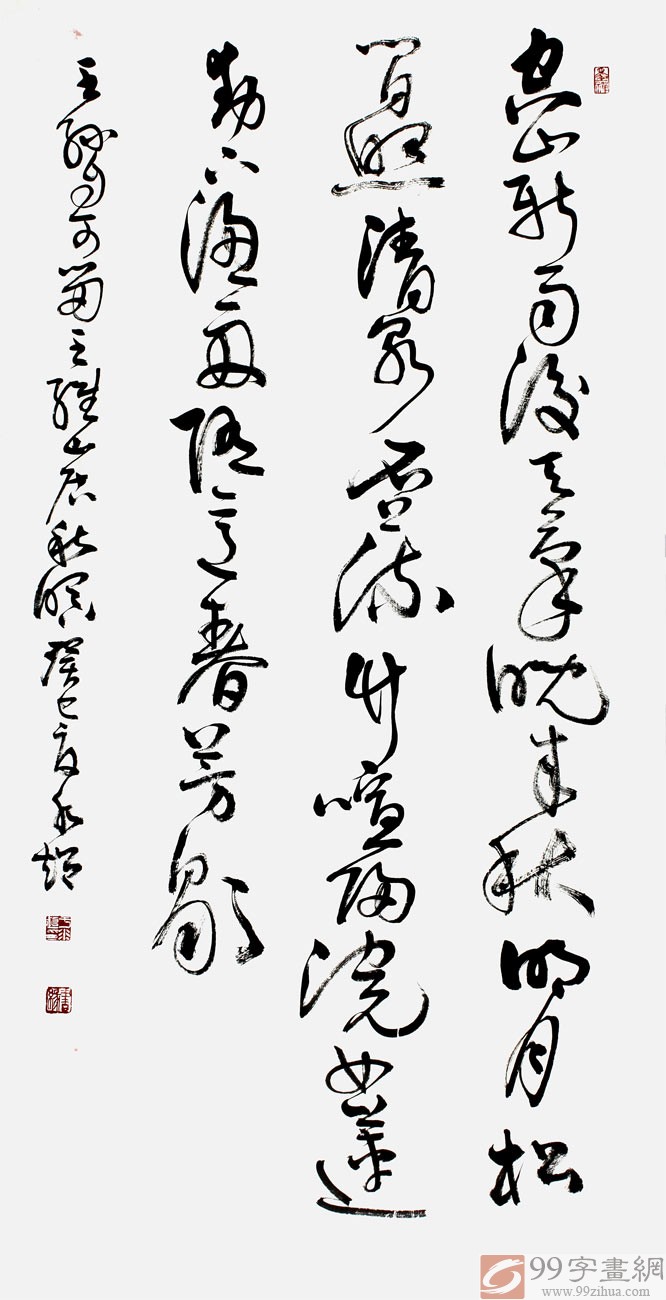 空山新雨後天氣晚來秋明月松
間照清泉石上流竹喧歸浣女蓮
動下漁舟隨意春芳歇
王孫自可留王維山居秋暝癸巳夏永
99字畫網
www.99zihua.com